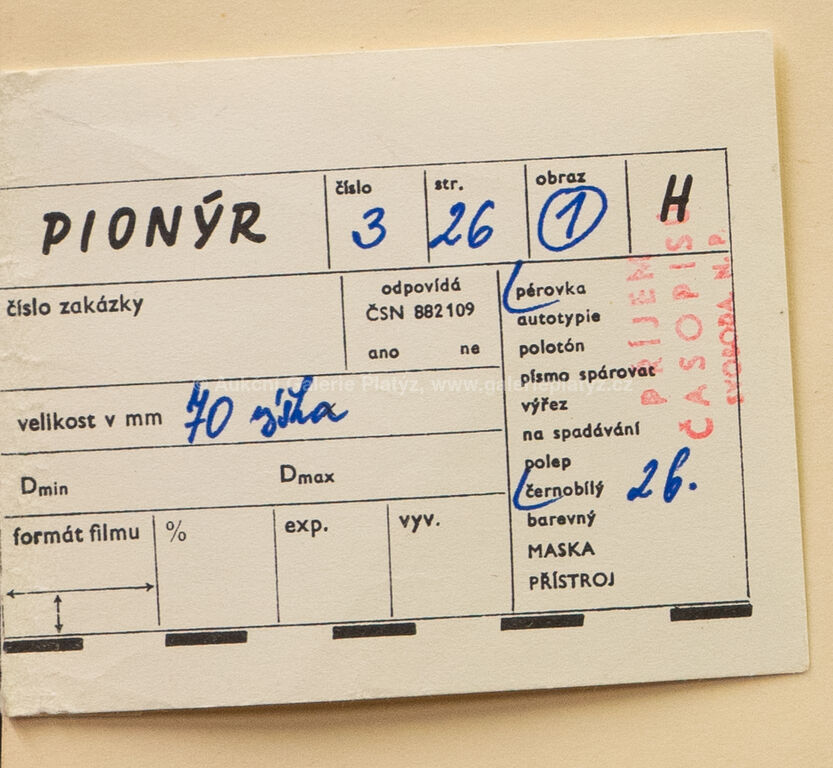 PIONÝR
číslo
3
str.
26
obraz
1
H
číslo zakázky
odpovídá
ČSN 882109
ano ne
velikost v mm 70 výška
Dmin Dmax
formát filmu % exp. vyv.
pérovka
autotypie
polotón
písmo spárovat
výřez
na spadávání
polep
černobílý 26.
barevný
MASKA
PŘÍSTROJ
PŘÍJEM
ČASOPISU
SVOBODA N. P.
© Aukční Galerie Platýz, www.galerieplatyz.cz